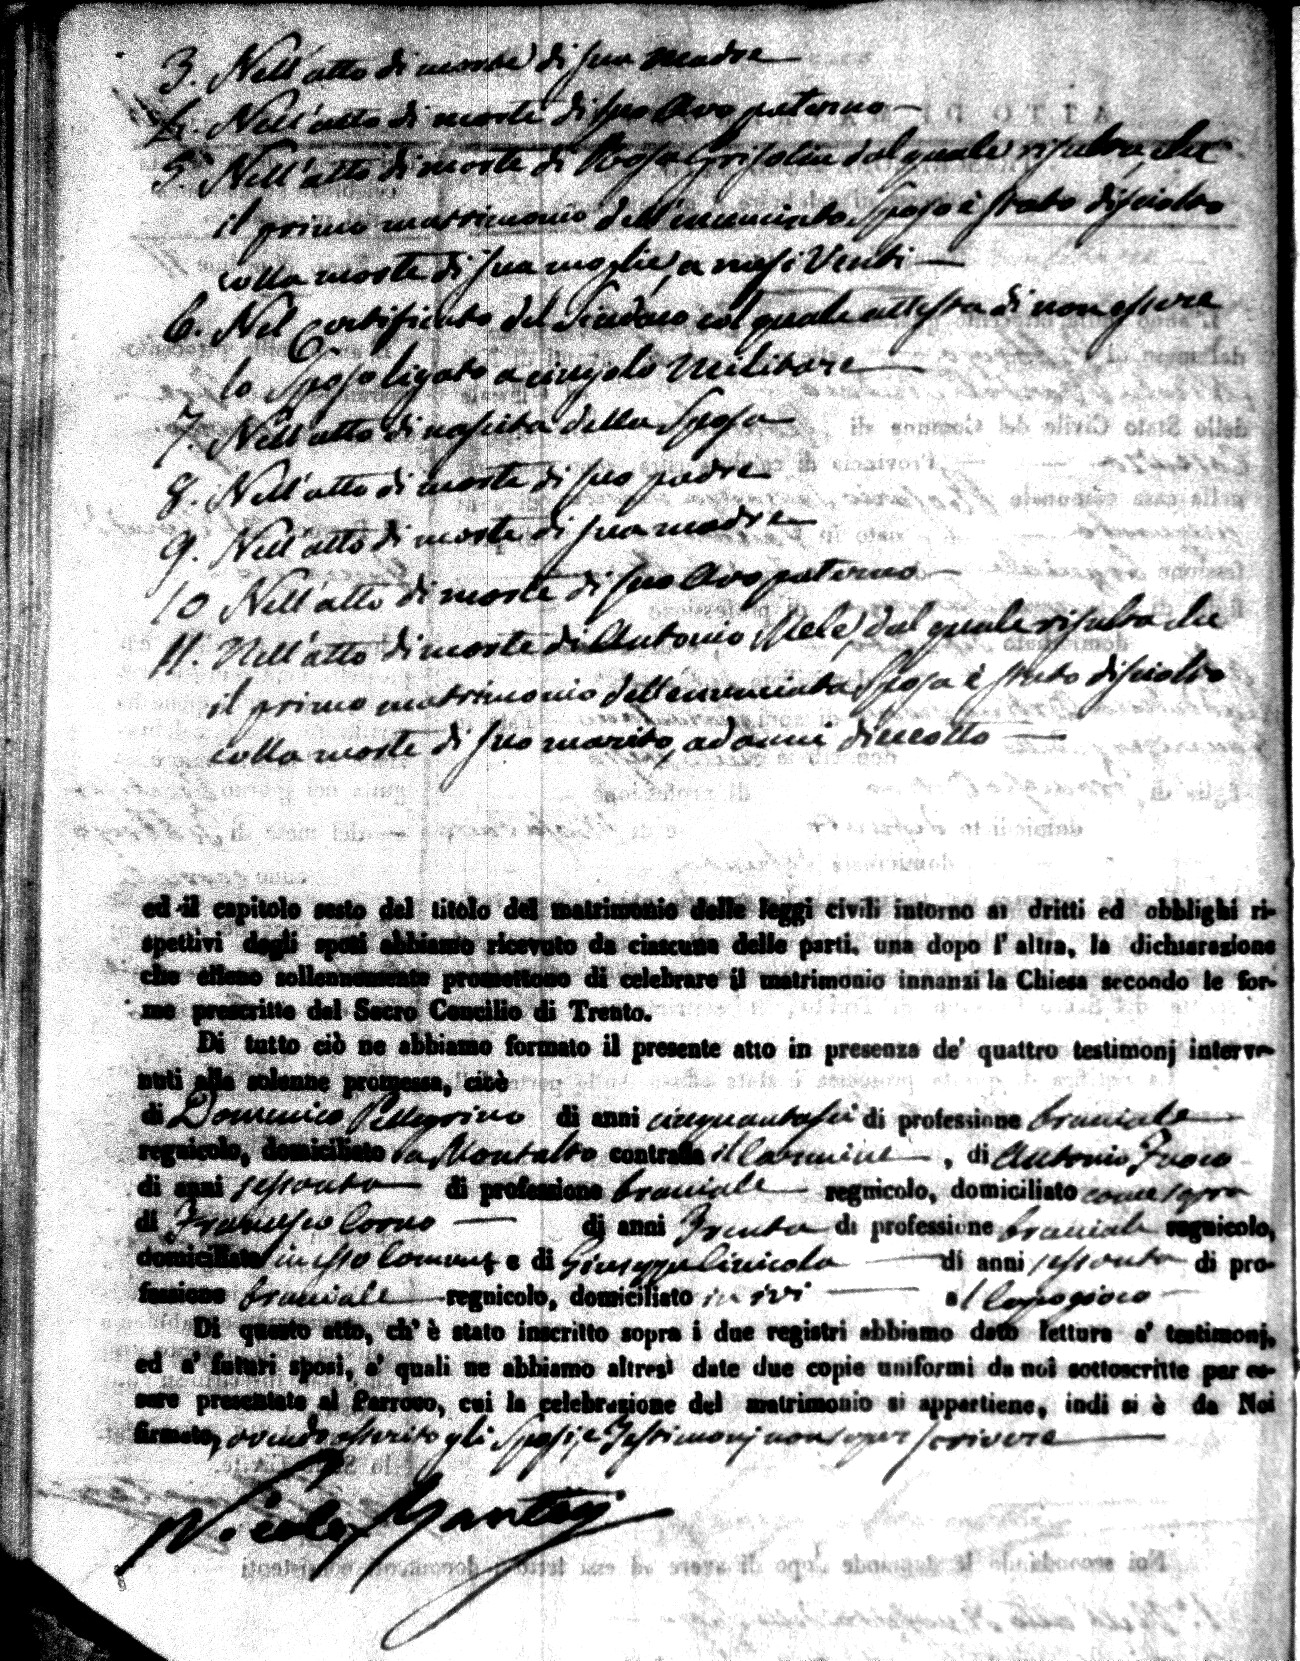 3. Nell'atto di morte di sua madre
4. Nell'atto di morte di suo Avo paterno
5. Nell'atto di morte di Rosa Grisolia dal quale risulta, che
il primo matrimonio dell'enunciato Sposo è stato disciolto
colla morte di sua moglie, a mesi Venti
6. Nel Certificato del Sindaco col quale attesta di non essere
lo Sposo ligato a cingolo Militare
7. Nell'atto di nascita della Sposa
8. Nell'atto di morte di suo padre
9. Nell'atto di morte di sua madre
10 Nell'atto di morte di suo Avo paterno
11. Nell'atto di morte di Antonio Mele, dal quale risulta che
il primo matrimonio dell'enunciata Sposa è stato disciolto
colla morte di suo marito, ad anni dieciotto
ed il capitolo sesto del titolo del matrimonio delle leggi civili intorno ai dritti ed obblighi ri-
spettivi degli sposi abbiamo ricevuto da ciascuna delle parti, una dopo l'altra, la dichiarazione
che elleno sollennemente promettono di celebrare il matrimonio innanzi la Chiesa secondo le for-
me prescritte dal Sacro Concilio di Trento.
Di tutto ciò ne abbiamo formato il presente atto in presenza de' quattro testimonj interve-
nuti alla solenne promessa, cioè
di Domenico Pellegrino di anni cinquantasei di professione braciale
regnicolo, domiciliato a Montalto contrada il Carmine, di Antonio Fuoco
di anni sessanta di professione braciale regnicolo, domiciliato come sopra
di Francesco Corno di anni Trenta di professione braciale regnicolo,
domiciliato in esso Comune e di Giuseppe Cinicola di anni sessanta di pro-
fessione braciale regnicolo, domiciliato ivi al
Di questo atto, ch'è stato inscritto sopra i due registri abbiamo dato lettura a' testimonj,
ed a' futuri sposi, a' quali ne abbiamo altresì date due copie uniformi da noi sottoscritte per es-
sere presentate al Parroco, cui la celebrazione del matrimonio si appartiene, indi si è da Noi
firmato, avendo asserito gli Sposi, e Testimonj non saper scrivere